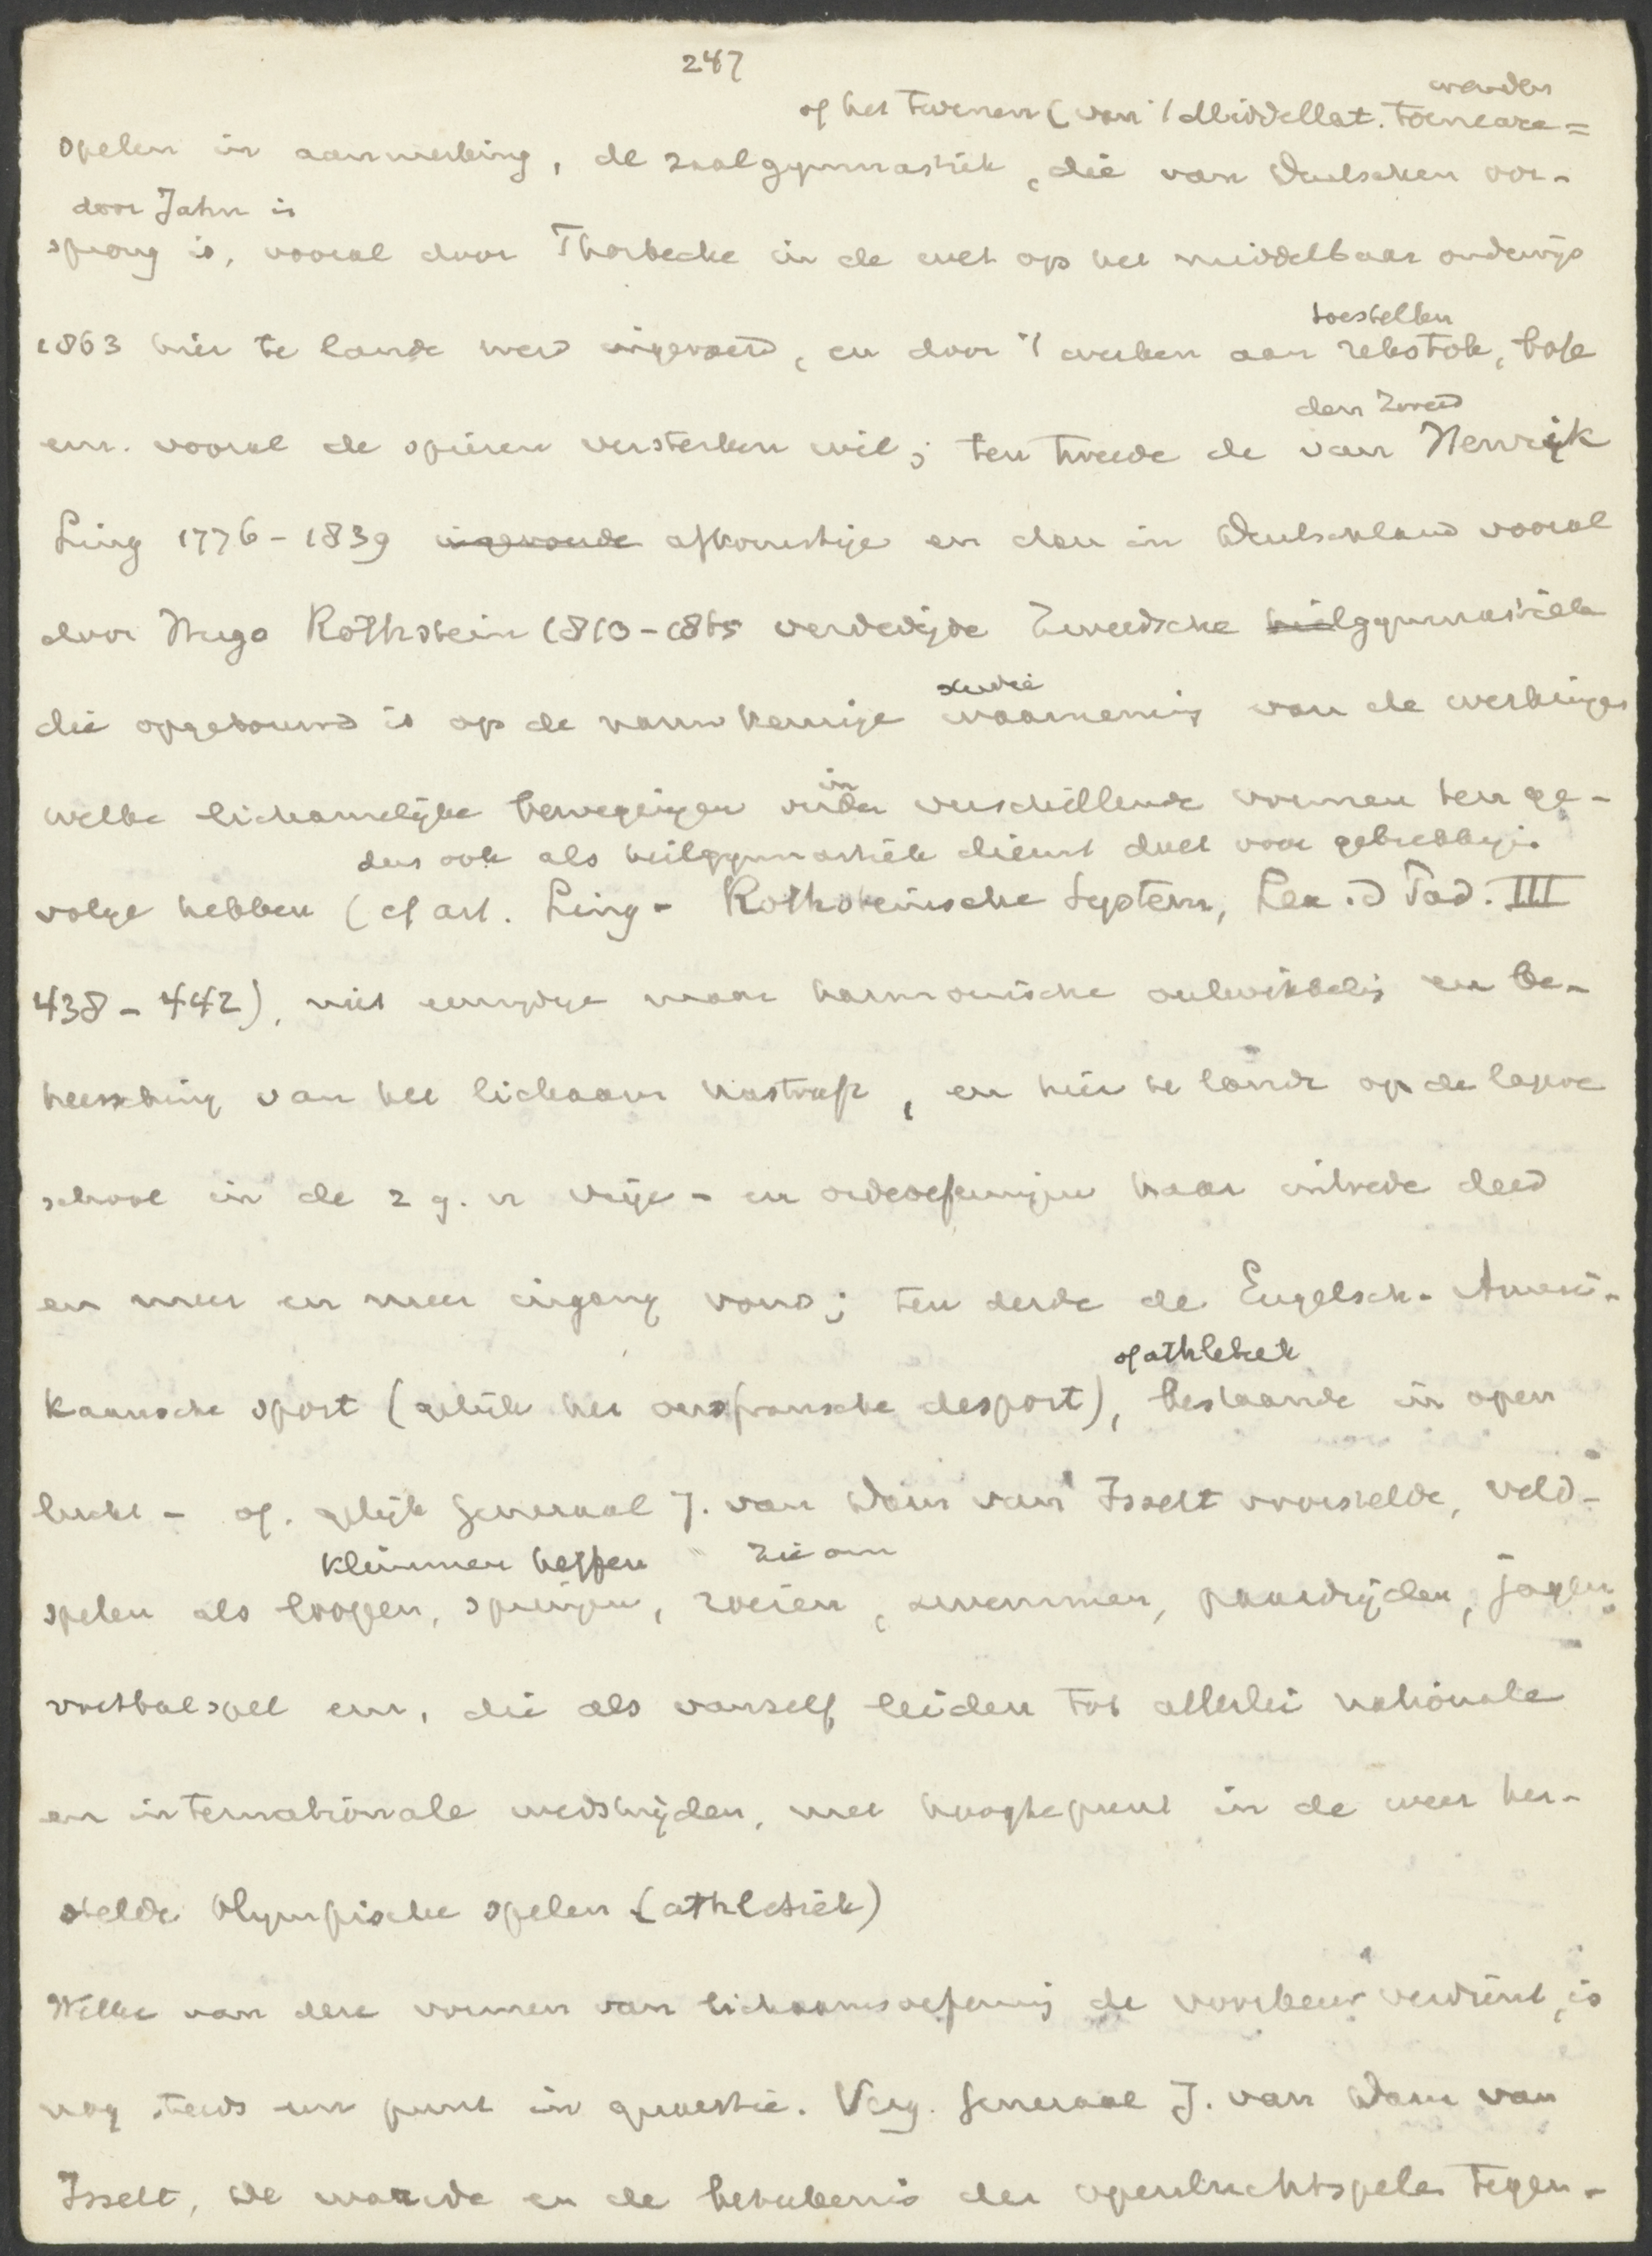 247
wenden
of het Turnen (van 't Middellat. Toeneare=
spelen in aanmerking, de zaalgymnastiek, die van Duitschen oor-
door Jahn is
sprong is, vooral door Thorbecke in de wet op het middelbaar onderwijs
1863 hier te lande werd ingevoerd, en door 't werken aan rekstok, bok
toestellen
enz. vooral de spieren versterken wil; ten tweede de van Henrijk
den Zweed
Ling 1776-1839 ingevoerde afkomstige en dan in Duitschland vooral
door Hugo Rothstein 1810-1865 verdedigde Zweedsche heilgymnastiek
die opgebouwd is op de nauwkeurige waarneming van de werkingen
studie
welke lichamelijke bewegingen onder verschillende vormen ten ge-
in
dus ook als heilgymnastiek dienst doet voor gebrekkigen
volge hebben (cf art. Ling-Rothsteinsche System, Lex. d Päd. III
438-442), niet eenzijdige maar harmonische ontwikkeling en be-
heersching van het lichaam nastreeft, en hier te lande op de lagere
school in de z g. n vrije- en ordeoefeningen haar intrede deed
en meer en meer ingang vond; ten derde de Engelsch-Ameri-
of athletiek
kaansche sport (gelijk het oudfransche desport), bestaande in open
lucht- of, gelijk Generaal J. van Dam van Isselt voorstelde, veld-
klimmen heffen
spelen als loopen, springen, roeien, zwemmen, paardrijden, jagen,
voetbalspel enz, die als vanzelf leiden tot allerlei nationale
en internationale wedstrijden, met hoogtepunt in de weer her-
stelde Olympische spelen (athletiek)
Welke van deze vormen van lichaamsoefening de voorkeur verdient, is
nog steeds een punt in quaestie. Verg. Generaal J. van Dam van
Isselt, De waarde en de beteekenis der openluchtspelen tegen-